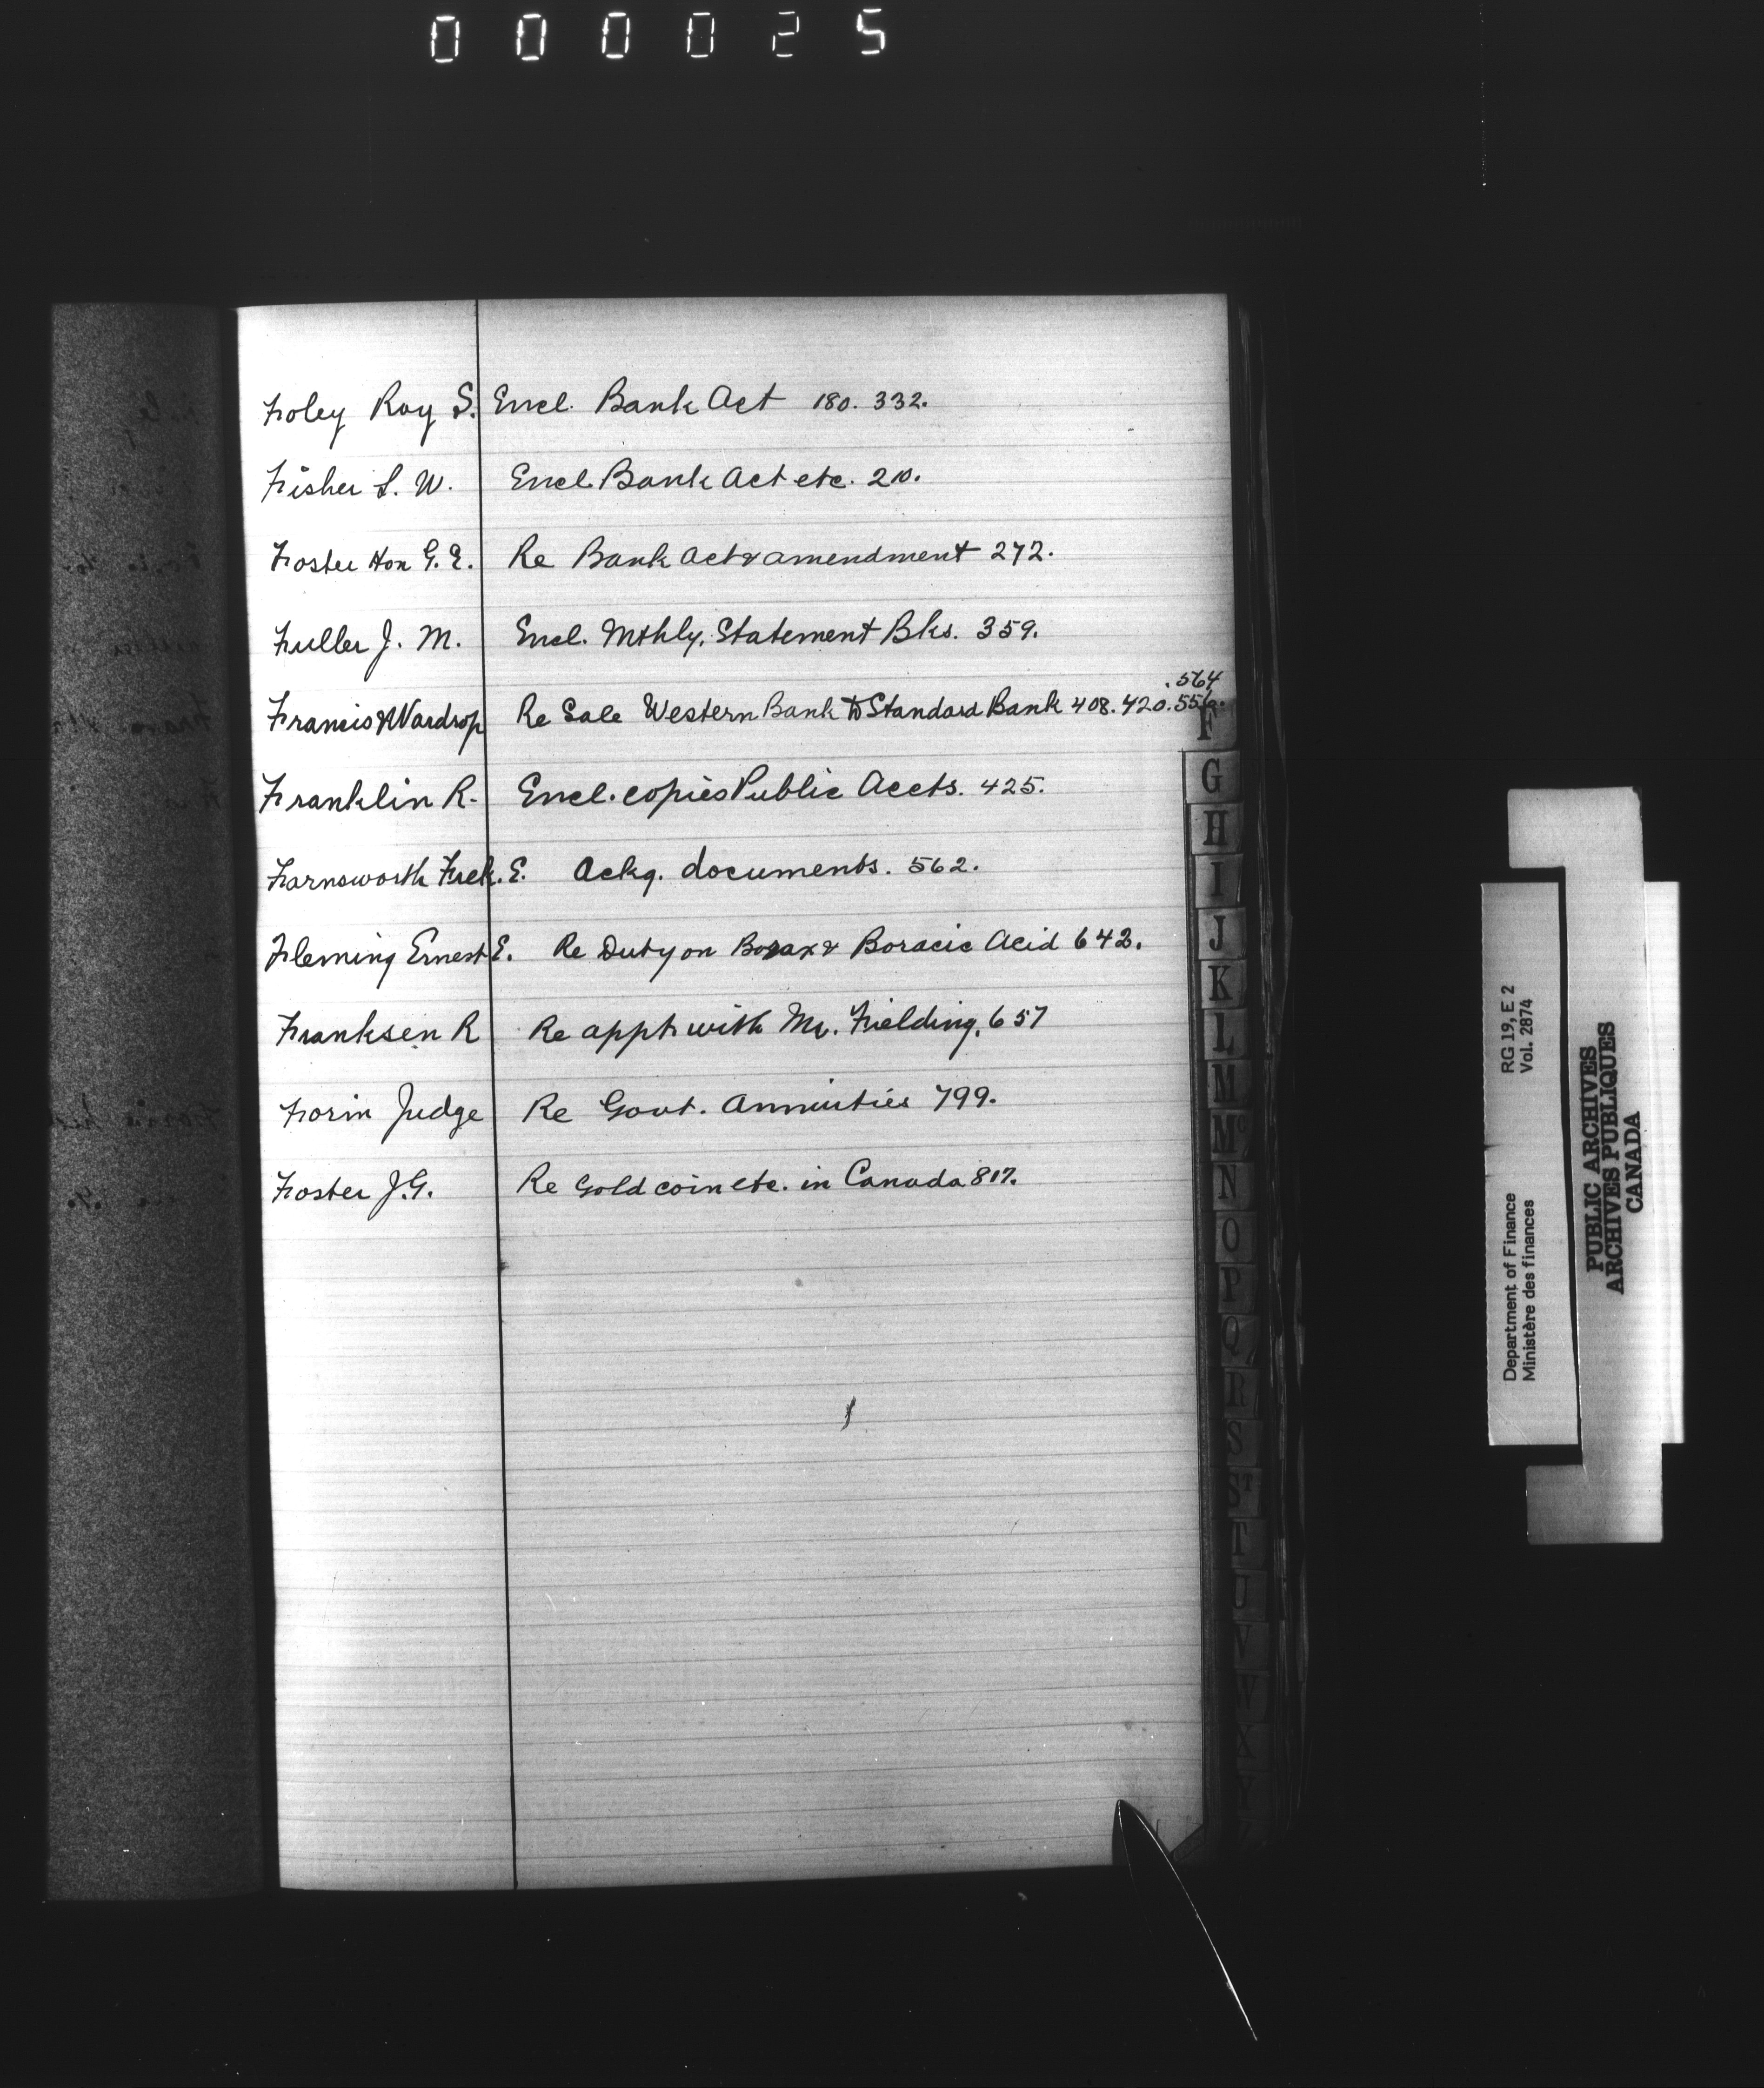 000025
Foley Roy S. Encl. Bank Act 180. 332.
Fisher S. W. Encl Bank Act etc. 210.
Foster Hon G. E. Re Bank Act & amendment 272.
Fuller J. M. Encl. Mthly. Statement Bks. 359.
.564
Francis & Wardrop Re Sale Western Bank to Standard Bank 408. 420. 556.
Franklin R. Encl. copies Public Accts. 425.
Farnsworth Fredk. E. Ackg. documents. 562.
Fleming Ernest E. Re Duty on Borax & Boracic Acid 642.
Franksen R Re appt. with Mr. Fielding. 657
Forin Judge Re Govt. Annuities 799.
Foster J.G. Re Gold coin etc. in Canada 817.
F
G
H
I
J
K
L
M
Mc
N
O
P
Q
R
S
ST
T
U
V
W
X
Y
Department of Finance RG 19, E 2
Ministère des finances Vol. 2874
PUBLIC ARCHIVES
ARCHIVES PUBLIQUES
CANADA